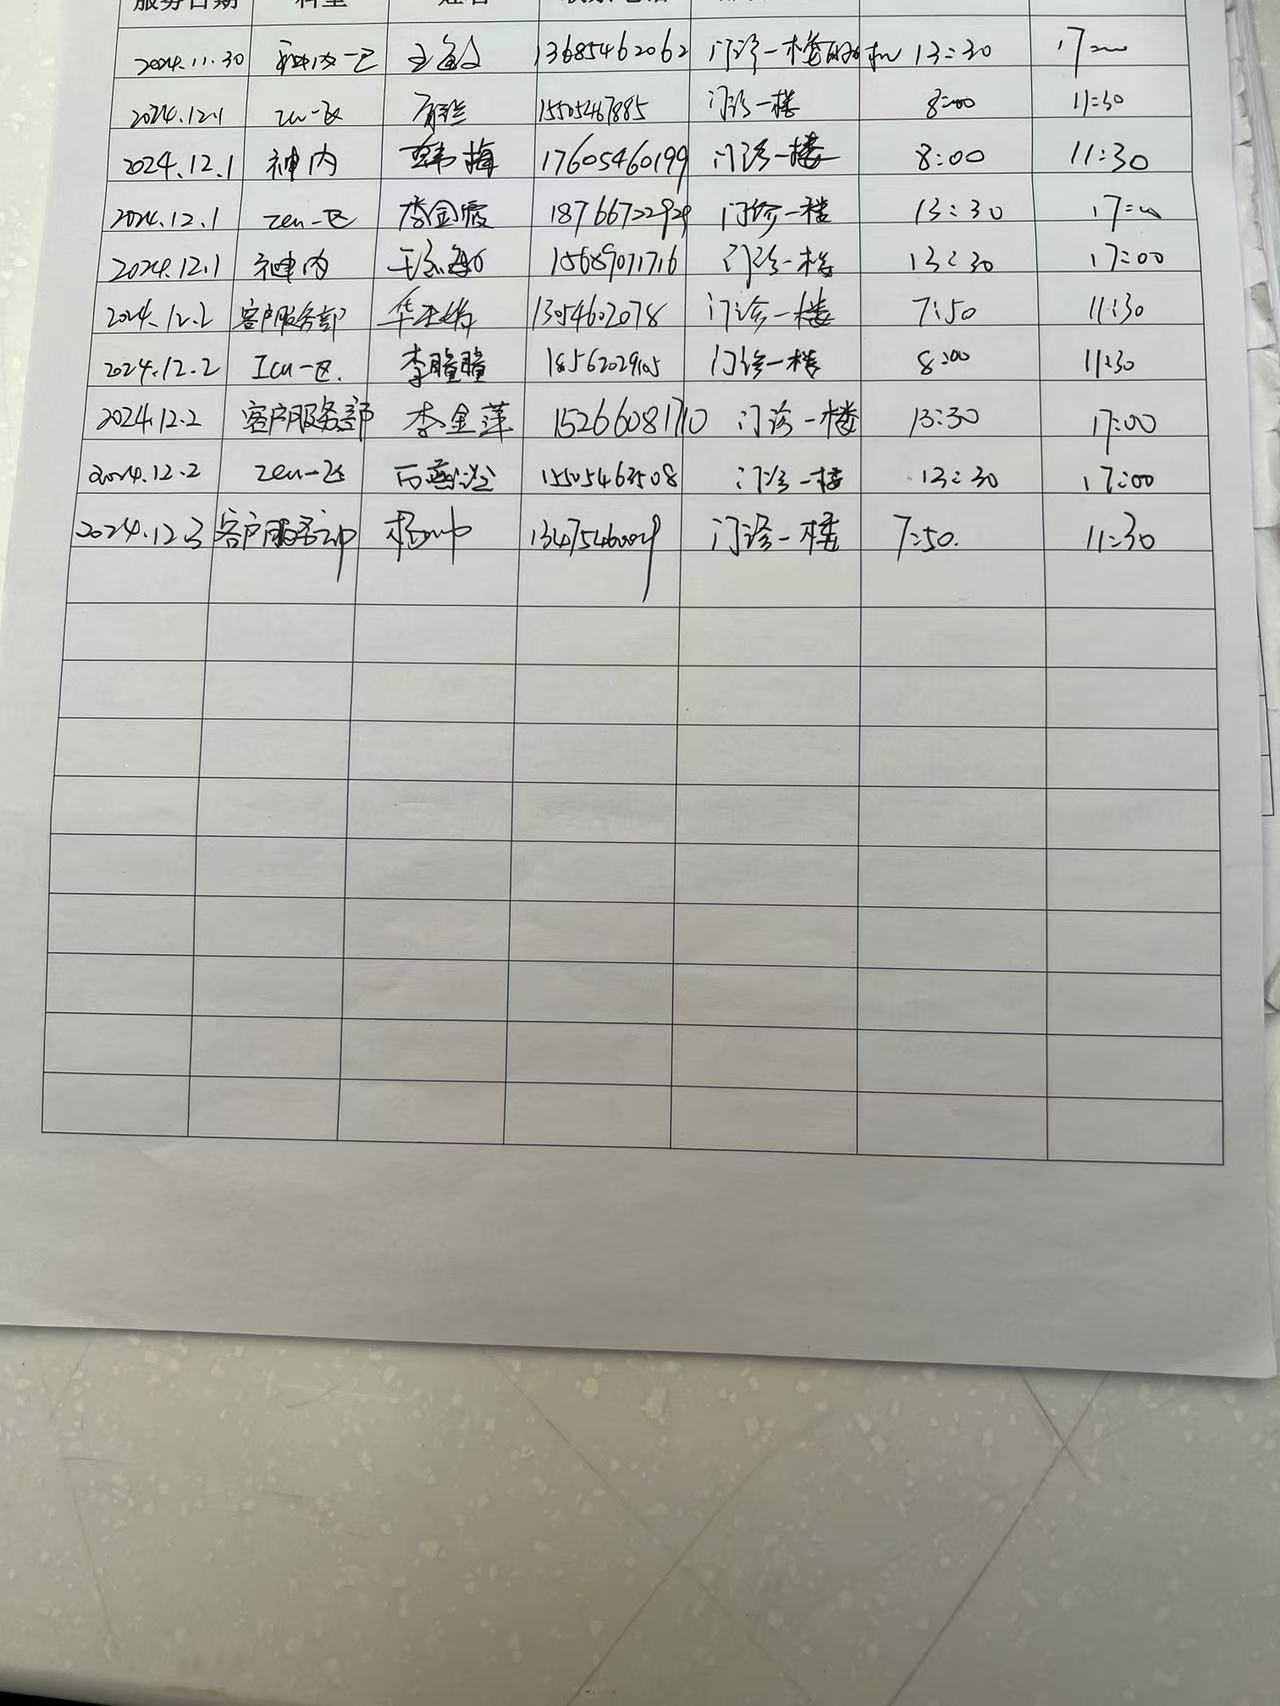 服务日期 科室 姓名 联系电话
2024.11.30 神内一区 13685462062 门诊一楼 13:30 17:00
2024.12.1 ICU一区 15505467885 门诊一楼 8:00 11:30
2024.12.1 神内 韩梅 17605460199 门诊一楼 8:00 11:30
2024.12.1 ICU一区 李金霞 18766722929 门诊一楼 13:30 17:00
2024.12.1 神内 15689071716 门诊一楼 13:30 17:00
2024.12.2 客户服务部 华 13054602078 门诊一楼 7:50 11:30
2024.12.2 Icu一区. 李瞳瞳 18562029105 门诊一楼 8:00 11:30
2024.12.2 客户服务部 李金萍 15266081710 门诊一楼 13:30 17:00
2024.12.2 ICU一区 15505463508 门诊一楼 13:30 17:00
2024.12.3 客户服务部 杨 13475460029 门诊一楼 7:50. 11:30